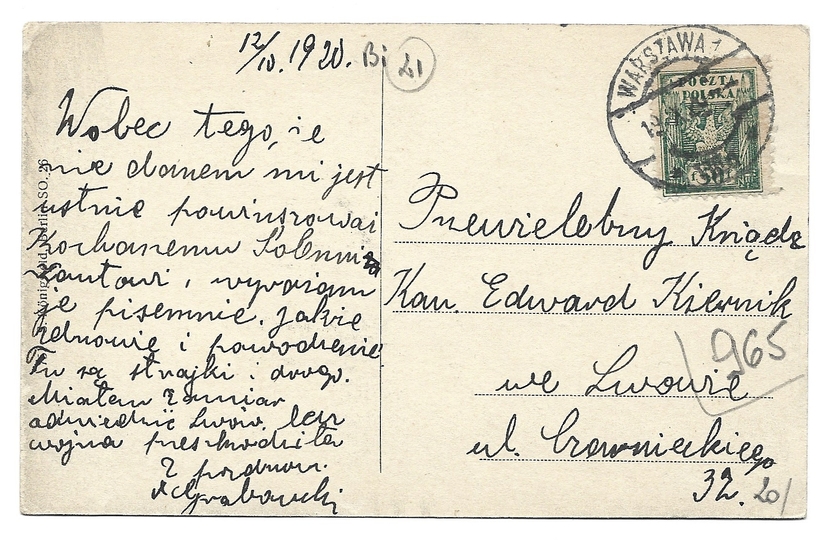 12/IV. 1920. Bi 21
WARSZAWA 1
POCZTA
POLSKA
Wobec tego, że
nie danem mi jest
ustnie powinszować
Kochanemu Soleni-
zantowi, wyrażam
je pisemnie. Jakie
zdrowie i powodzenie
Tu są strajki i drogo.
Miałam zamiar
odwiedzić Lwów, lecz
wojna przeszkodziła
Z pozdrow.
Grabowski
Przewielebny Ksiądz
Kan. Edward Kiernik
965
we Lwowie
ul. Czarnieckiego
32.
20/
SO. 26